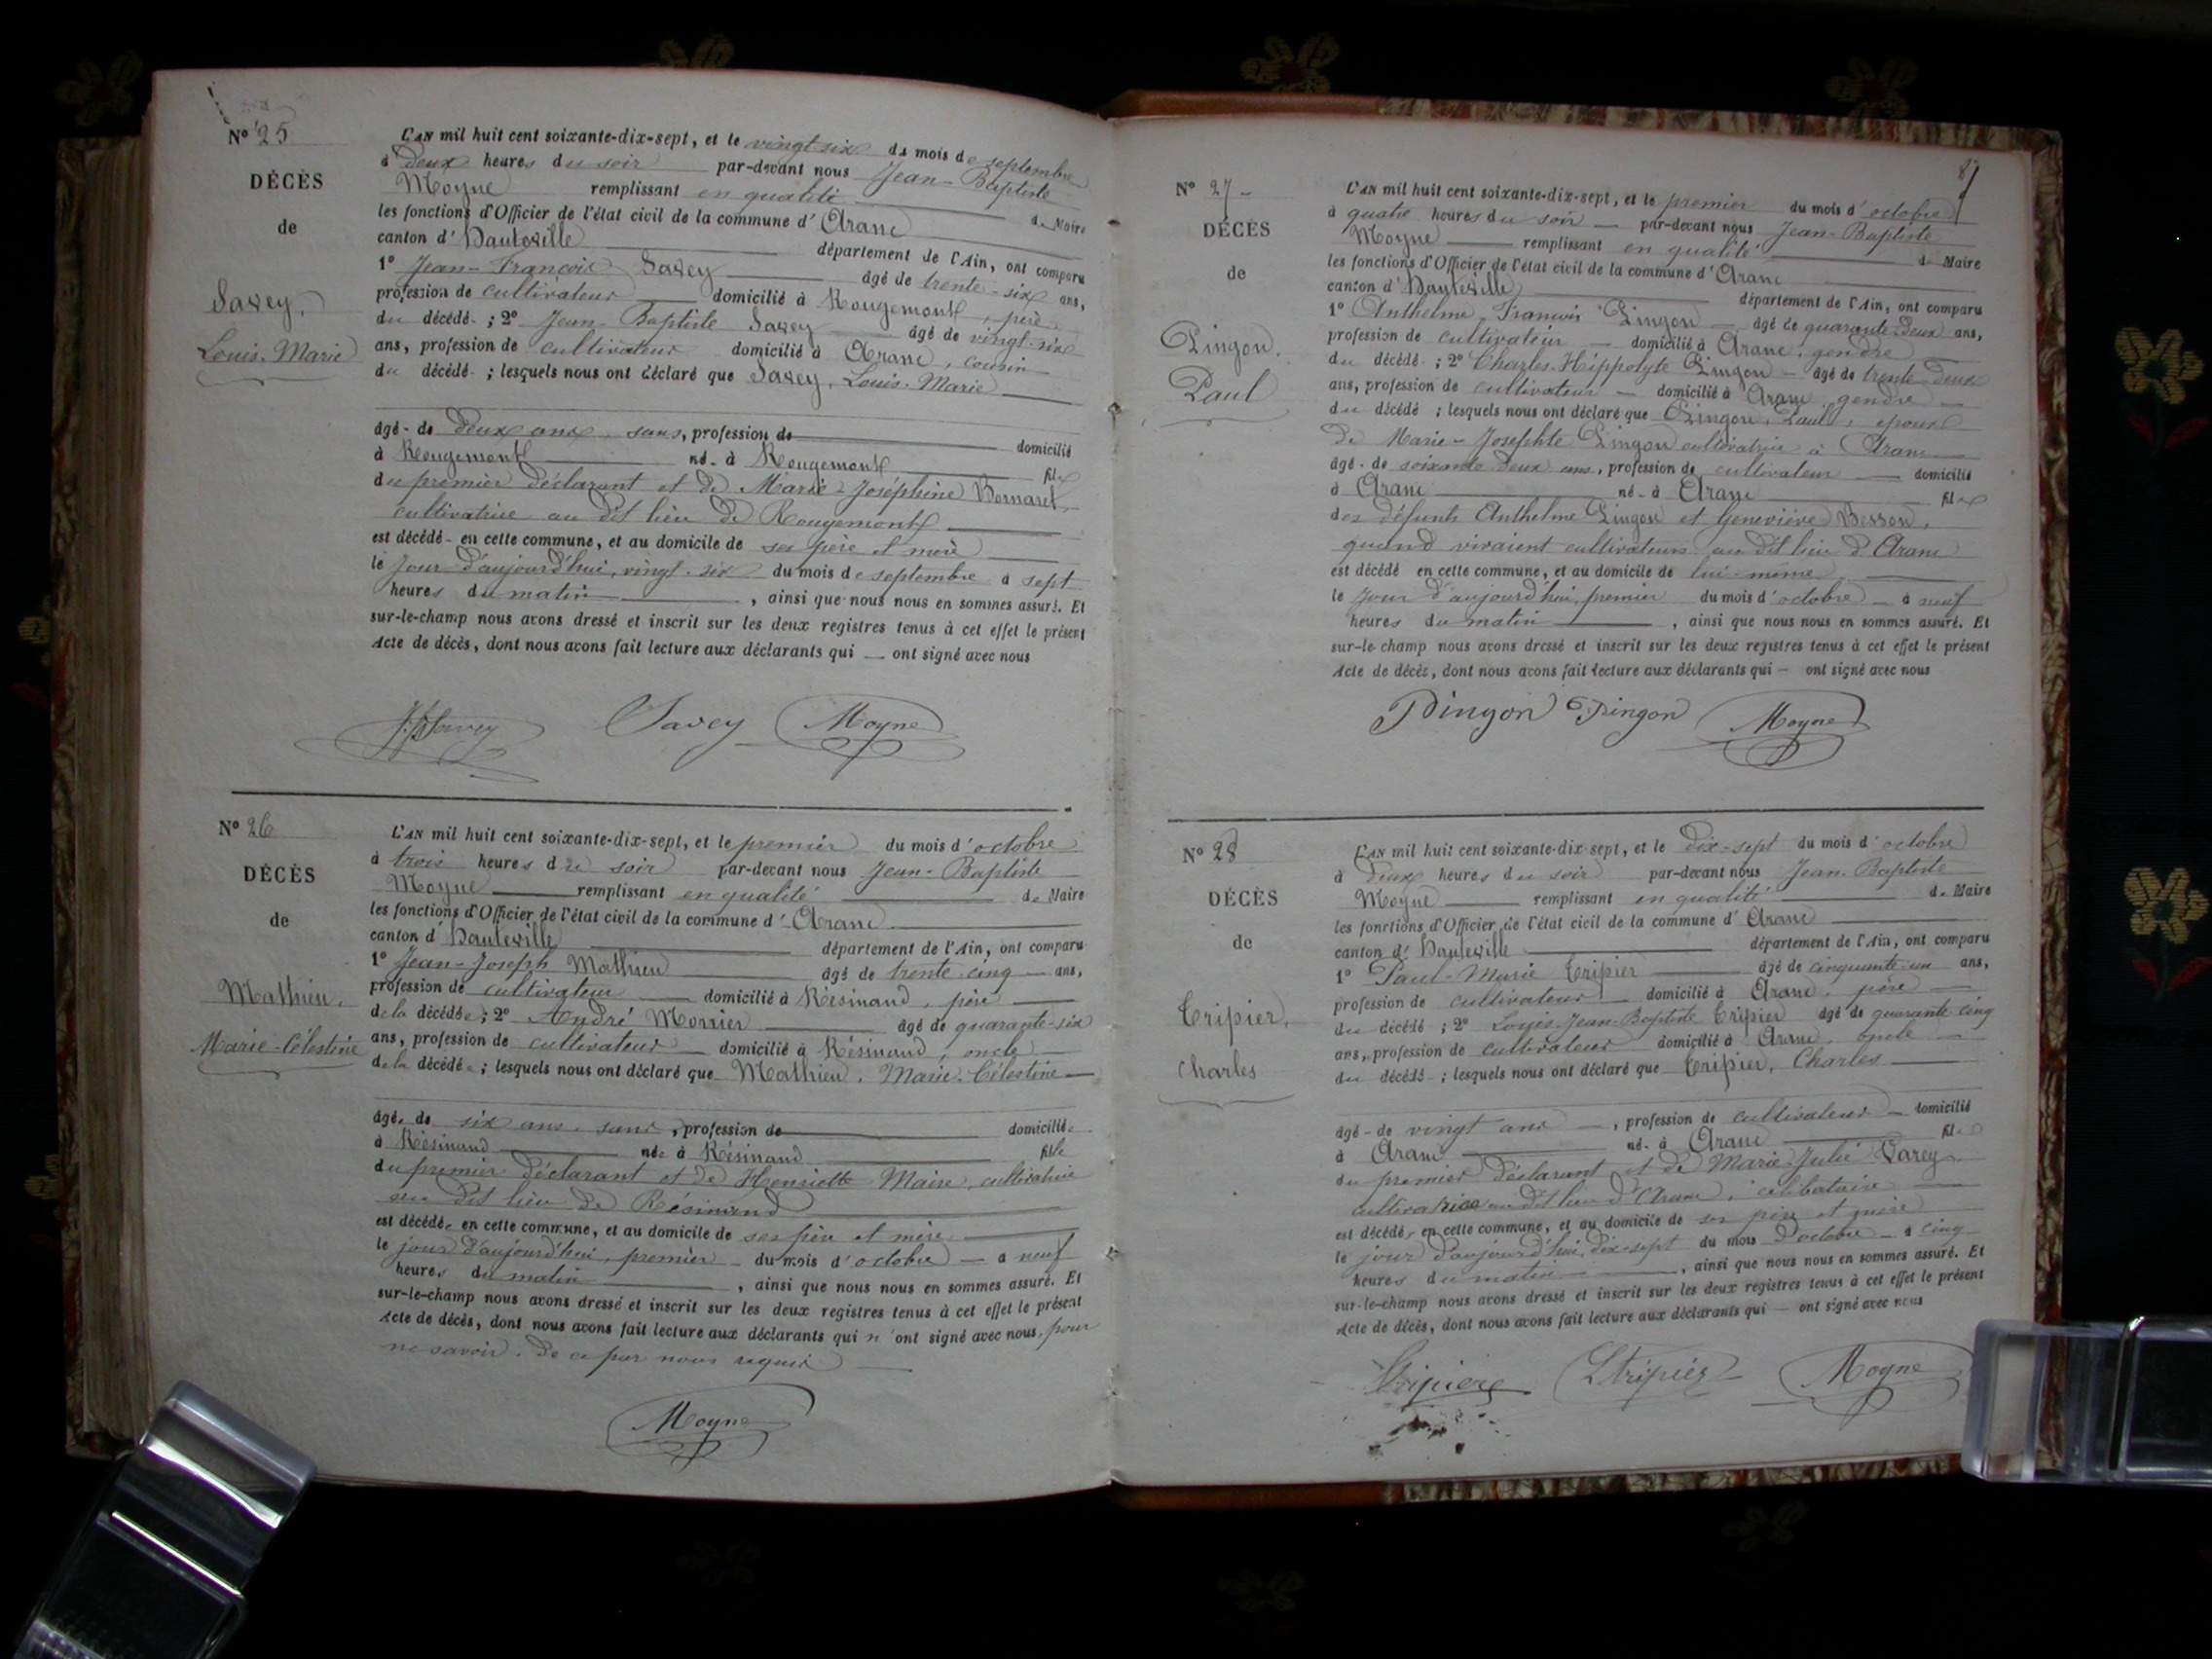 Nº 25
DÉCÈS
de
Savey,
Louis-Marie
L'AN mil huit cent soixante-dix-sept, et le vingt-six du mois de septembre
à deux heures du soir par-devant nous Jean-Baptiste
Moyne remplissant en qualité de Maire
les fonctions d'Officier de l'état civil de la commune d'Aranc
canton d'Hauteville département de l'Ain, ont comparu
1º Jean-François Savey âgé de trente-six ans,
profession de cultivateur domicilié à Rougemont, père
du décédé ; 2º Jean-Baptiste Savey âgé de vingt-six
ans, profession de cultivateur domicilié à Aranc, cousin
du décédé ; lesquels nous ont déclaré que Savey, Louis-Marie
âgé de deux ans, sans, profession de domicilié
à Rougemont né à Rougemont fils
du premier déclarant et de Marie-Joséphine
cultivatrice au dit lieu de Rougemont
est décédé en cette commune, et au domicile de ses père et mère
le jour d'aujourd'hui, vingt-six du mois de septembre à sept
heures du matin, ainsi que nous nous en sommes assuré. Et
sur-le-champ nous avons dressé et inscrit sur les deux registres tenus à cet effet le présent
Acte de décès, dont nous avons fait lecture aux déclarants qui — ont signé avec nous
J B Savey Savey Moyne
Nº 26
DÉCÈS
de
Mathieu,
Marie-Célestine
L'AN mil huit cent soixante-dix-sept, et le premier du mois d'octobre
à trois heures du soir par-devant nous Jean-Baptiste
Moyne remplissant en qualité de Maire
les fonctions d'Officier de l'état civil de la commune d'Aranc
canton d'Hauteville département de l'Ain, ont comparu
1º Jean-Joseph Mathieu âgé de trente-cinq ans,
profession de cultivateur domicilié à Résinand, père
de la décédée ; 2º André Monier âgé de quarante-six
ans, profession de cultivateur domicilié à Résinand, oncle
de la décédée ; lesquels nous ont déclaré que Mathieu, Marie-Célestine
âgée de six ans, sans, profession de domiciliée
à Résinand née à Résinand fille
du premier déclarant et de Henriette Maire, cultivatrice
au dit lieu de Résinand
est décédée en cette commune, et au domicile de ses père et mère
le jour d'aujourd'hui, premier du mois d'octobre à neuf
heures du matin, ainsi que nous nous en sommes assuré. Et
sur-le-champ nous avons dressé et inscrit sur les deux registres tenus à cet effet le présent
Acte de décès, dont nous avons fait lecture aux déclarants qui n'ont signé avec nous, pour
ne savoir. De ce par nous requis
Moyne
87
Nº 27
DÉCÈS
de
Pingon,
Paul
L'AN mil huit cent soixante-dix-sept, et le premier du mois d'octobre
à quatre heures du soir par-devant nous Jean-Baptiste
Moyne remplissant en qualité de Maire
les fonctions d'Officier de l'état civil de la commune d'Aranc
canton d'Hauteville département de l'Ain, ont comparu
1º Anthelme François Pingon âgé de quarante-deux ans,
profession de cultivateur domicilié à Aranc, gendre
du décédé ; 2º Charles-Hippolyte Pingon âgé de trente-deux
ans, profession de cultivateur domicilié à Aranc, gendre
du décédé ; lesquels nous ont déclaré que Pingon, Paul, époux
de Marie-Josephte Pingon cultivatrice à Aranc
âgé de soixante-deux ans, profession de cultivateur domicilié
à Aranc né à Aranc fils
des défunts Anthelme Pingon et Geneviève Besson,
quand vivaient cultivateurs au dit lieu d'Aranc
est décédé en cette commune, et au domicile de lui-même
le jour d'aujourd'hui, premier du mois d'octobre à neuf
heures du matin, ainsi que nous nous en sommes assuré. Et
sur-le-champ nous avons dressé et inscrit sur les deux registres tenus à cet effet le présent
Acte de décès, dont nous avons fait lecture aux déclarants qui — ont signé avec nous
Pingon Pingon Moyne
Nº 28
DÉCÈS
de
Tripier,
Charles
L'AN mil huit cent soixante-dix-sept, et le dix-sept du mois d'octobre
à deux heures du soir par-devant nous Jean-Baptiste
Moyne remplissant en qualité de Maire
les fonctions d'Officier de l'état civil de la commune d'Aranc
canton d'Hauteville département de l'Ain, ont comparu
1º Paul-Marie Tripier âgé de cinquante-un ans,
profession de cultivateur domicilié à Aranc, père
du décédé ; 2º Louis-Jean-Baptiste Tripier âgé de quarante-cinq
ans, profession de cultivateur domicilié à Aranc, oncle
du décédé ; lesquels nous ont déclaré que Tripier, Charles
âgé de vingt ans, profession de cultivateur domicilié
à Aranc né à Aranc fils
du premier déclarant et de Marie-Julie Varey
cultivatrice au dit lieu d'Aranc, célibataire
est décédé en cette commune, et au domicile de ses père et mère
le jour d'aujourd'hui, dix-sept du mois d'octobre à cinq
heures du matin, ainsi que nous nous en sommes assuré. Et
sur-le-champ nous avons dressé et inscrit sur les deux registres tenus à cet effet le présent
Acte de décès, dont nous avons fait lecture aux déclarants qui — ont signé avec nous
Tripier Tripier Moyne